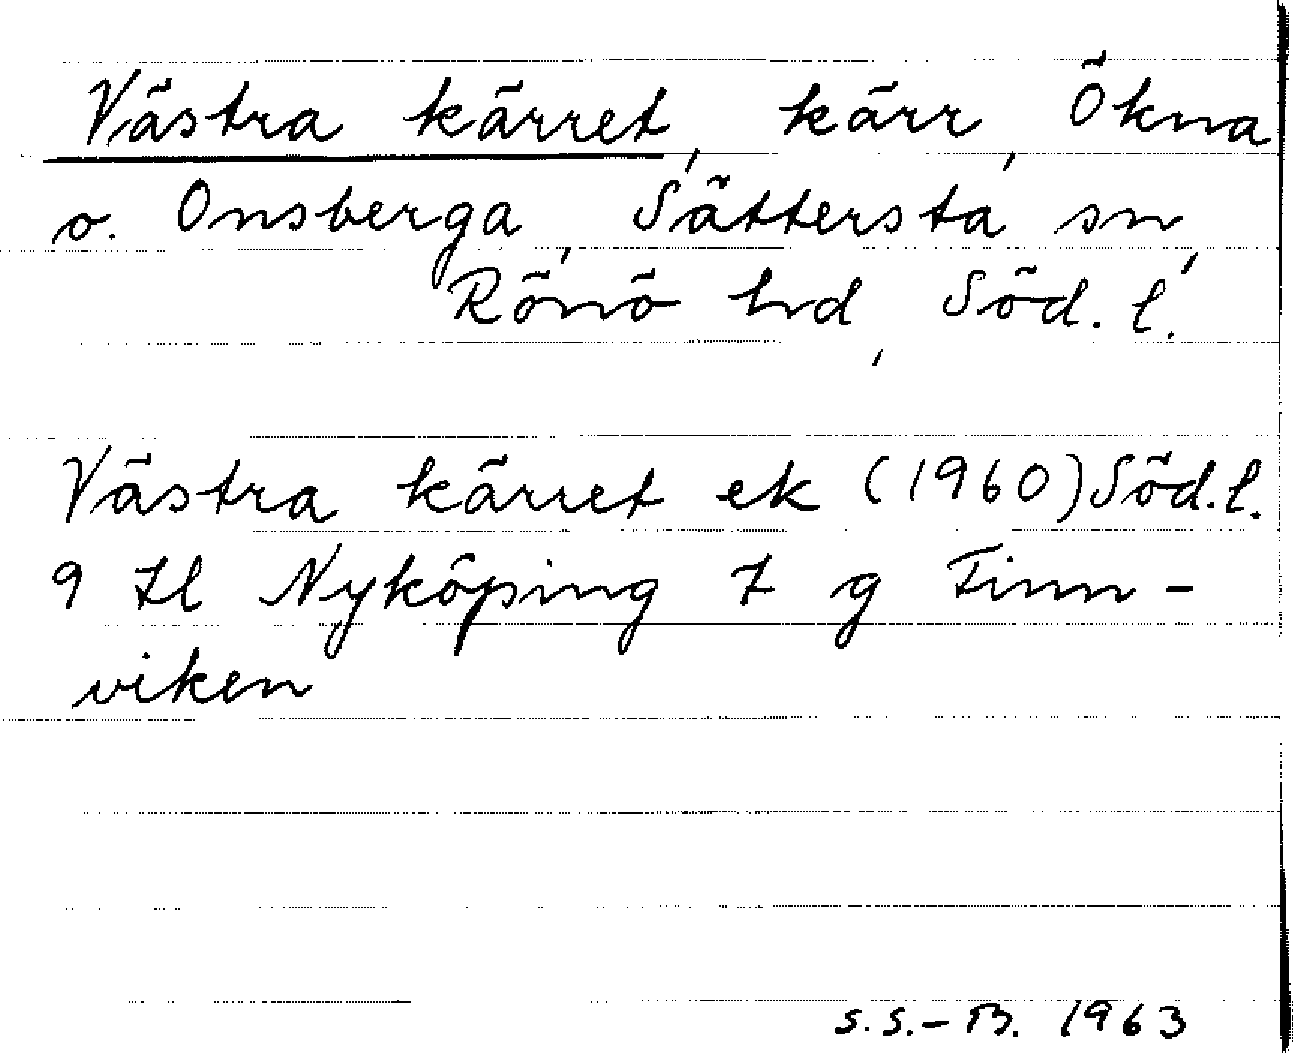 Västra kärret, kärr, Ökna
o. Onsberga, Sättersta sn,
Rönö hd, Söd. l.
Västra kärret ek (1960) Söd. l.
9 Il Nyköping 7 g Finn-
viken
S.S.-B. 1963